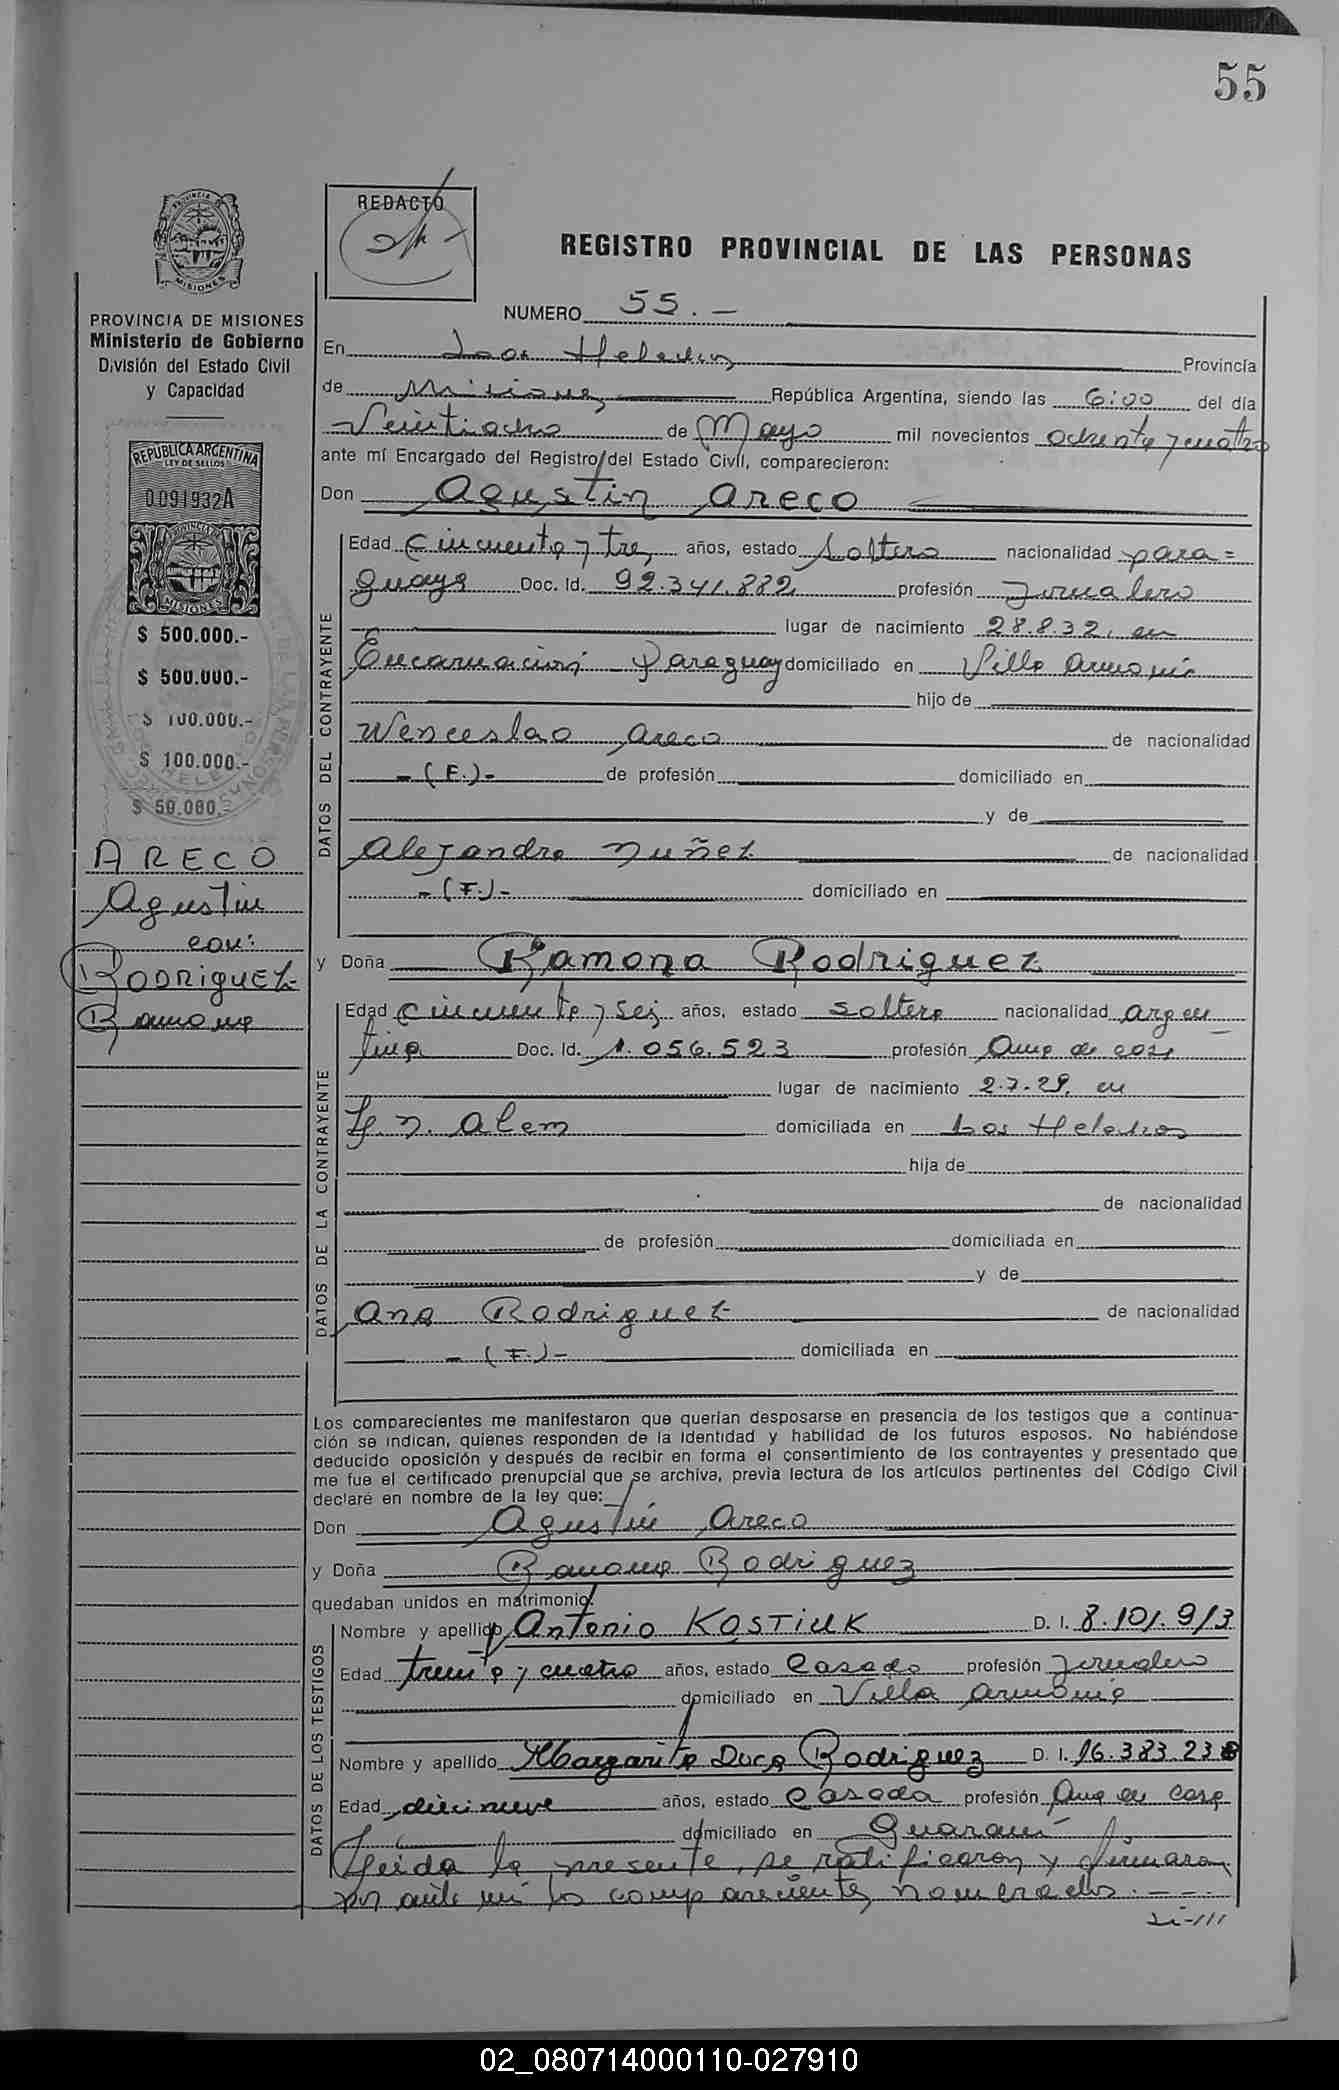 55
REDACTO
REGISTRO PROVINCIAL DE LAS PERSONAS
MISIONES
PROVINCIA DE MISIONES
Ministerio de Gobierno
División del Estado Civil
y Capacidad
REPUBLICA ARGENTINA
LEY DE SELLOS
0.091932A
PROVINCIA DE
MISIONES
$ 500.000.-
$ 500.000.-
$ 100.000.-
$ 100.000.-
$ 50.000.-
ARECO
Agustin
con:
RODRIGUEZ
Ramona
NUMERO 55.-
En Los Helechos Provincia
de Misiones República Argentina, siendo las 6:00 del día
Veintiocho de Mayo mil novecientos ochenta y cuatro
ante mí Encargado del Registro del Estado Civil, comparecieron:
Don Agustin Areco
DATOS DEL CONTRAYENTE
Edad Cincuenta y tres años, estado Soltero nacionalidad para=
guaya Doc. Id. 92.341.882 profesión Jornalero
lugar de nacimiento 28.8.32, en
Encarnación Paraguay domiciliado en Villa Armonía
hijo de
Wenceslao Areco de nacionalidad
-(F.)- de profesión domiciliado en
y de
Alejandra Nuñez de nacionalidad
-(F.)- domiciliado en
y Doña Ramona Rodriguez
DATOS DE LA CONTRAYENTE
Edad Cincuenta y seis años, estado soltera nacionalidad argen
tina Doc. Id. 1.056.523 profesión Ama de casa
lugar de nacimiento 2.7.29, en
L. N. Alem domiciliada en Los Helechos
hija de
de nacionalidad
de profesión domiciliada en
y de
Ana Rodriguez de nacionalidad
-(F.)- domiciliada en
Los comparecientes me manifestaron que querían desposarse en presencia de los testigos que a continua-
ción se indican, quienes responden de la identidad y habilidad de los futuros esposos. No habiéndose
deducido oposición y después de recibir en forma el consentimiento de los contrayentes y presentado que
me fue el certificado prenupcial que se archiva, previa lectura de los artículos pertinentes del Código Civil
declaré en nombre de la ley que:
Don Agustin Areco
y Doña Ramona Rodriguez
quedaban unidos en matrimonio.
DATOS DE LOS TESTIGOS
Nombre y apellido Antonio KOSTIUK D. I. 8.101.913
Edad treinta y cuatro años, estado Casado profesión Jornalero
domiciliado en Villa Armonía
Nombre y apellido Margarita Duca Rodriguez D. I. 16.383.23
Edad diecinueve años, estado Casada profesión Ama de casa
domiciliado en Guaraní
Leida la presente, se ratificaron y firmaron
por ante mí los comparecientes nomerados.--
02_080714000110-027910